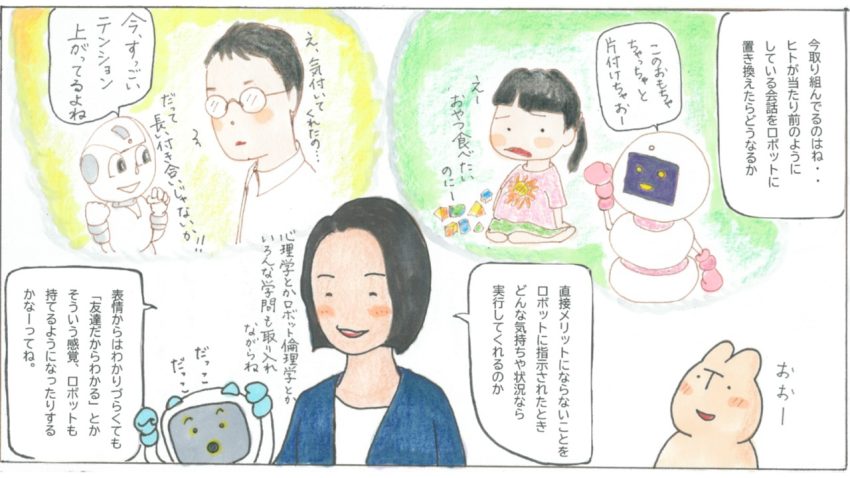 今取り組んでるのはね・・
ヒトが当たり前のように
している会話をロボットに
置き換えたらどうなるか
このおもちゃ
ちゃっちゃと
片付けちゃおー
えー
おやつ食べたい
のにー
え、気付いて
くれたの…
今、すっごい
テンション
上がってるよね
だって
長い付き合いじゃないか!!
直接メリットにならないことを
ロボットに指示されたとき
どんな気持ちや状況なら
実行してくれるのか
おおー
心理学とかロボット倫理学とか
いろんな学問も取り入れ
ながらね
表情からはわかりづらくても
「友達だからわかる」とか
そういう感覚、ロボットも
持てるようになったりする
かなーってね。
だっこ
だっこ